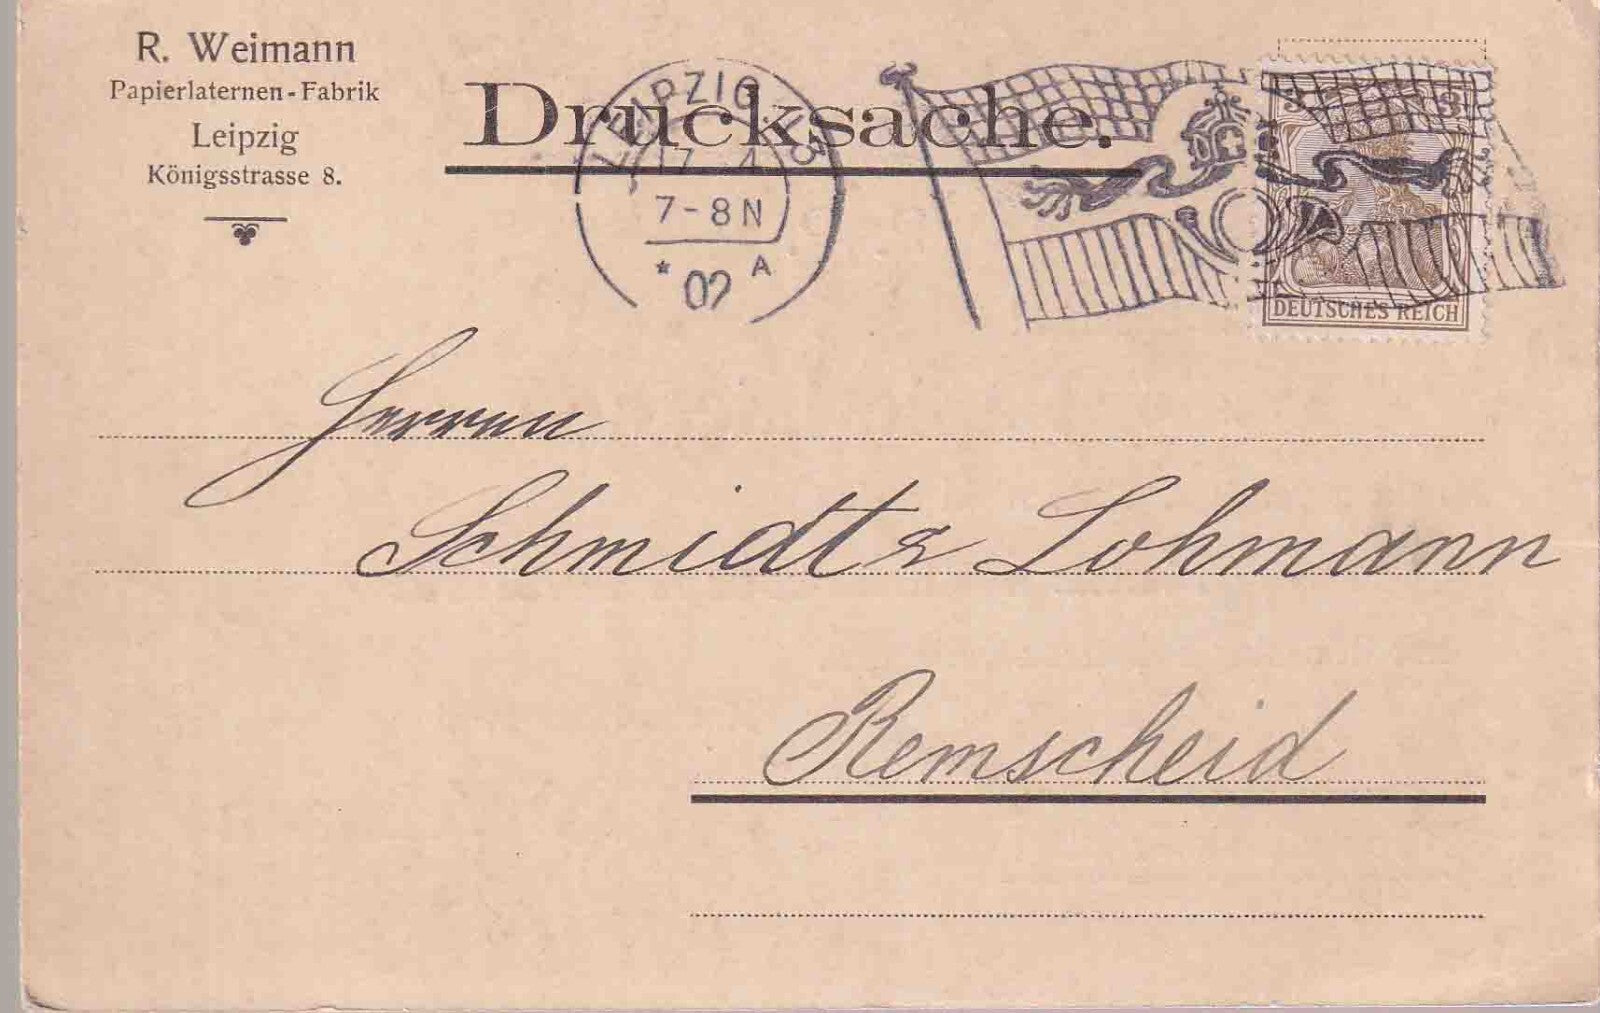 R. Weimann
Papierlaternen-Fabrik
Leipzig
Königsstrasse 8.
Drucksache.
LEIPZIG
17 4
7-8N
* 02 A
3 3
DEUTSCHES REICH
Herren
Schmidt & Lohmann
Remscheid